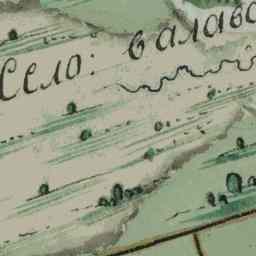 Село: валаво